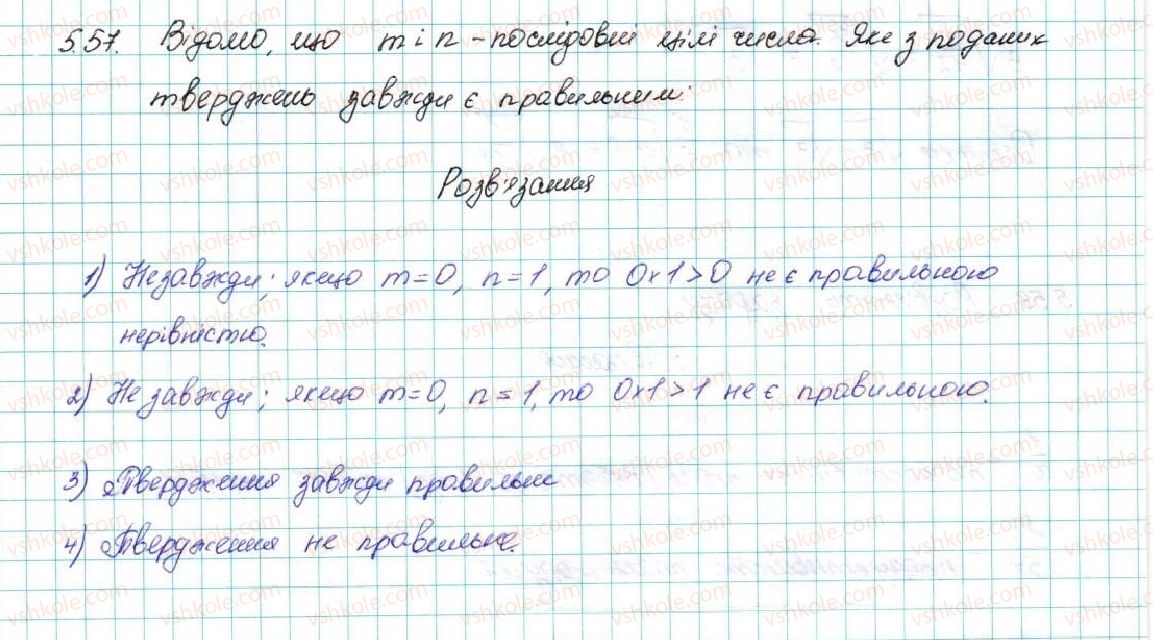 5.57. Відомо, що m і n – послідовні цілі числа. Яке з поданих
тверджень завжди є правильним:
Розв'язання
1) Не завжди; якщо m=0, n=1, то 0×1>0 не є правильною
нерівністю.
2) Не завжди; якщо m=0, n=1, то 0×1>1 не є правильною.
3) Твердження завжди правильне
4) Твердження не правильне.